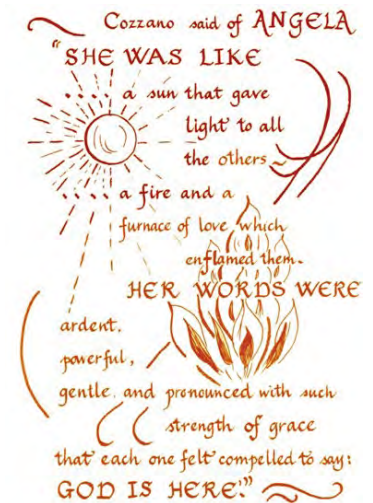 Cozzano said of ANGELA
"SHE WAS LIKE
.... a sun that gave
light to all
the others ~
.... a fire and a
furnace of love which
enflamed them.
HER WORDS WERE
ardent,
powerful,
gentle, and pronounced with such
strength of grace
that each one felt compelled to say:
GOD IS HERE!"